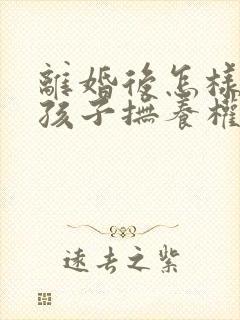 離婚後怎樣
孩子撫養權
遠去之紫